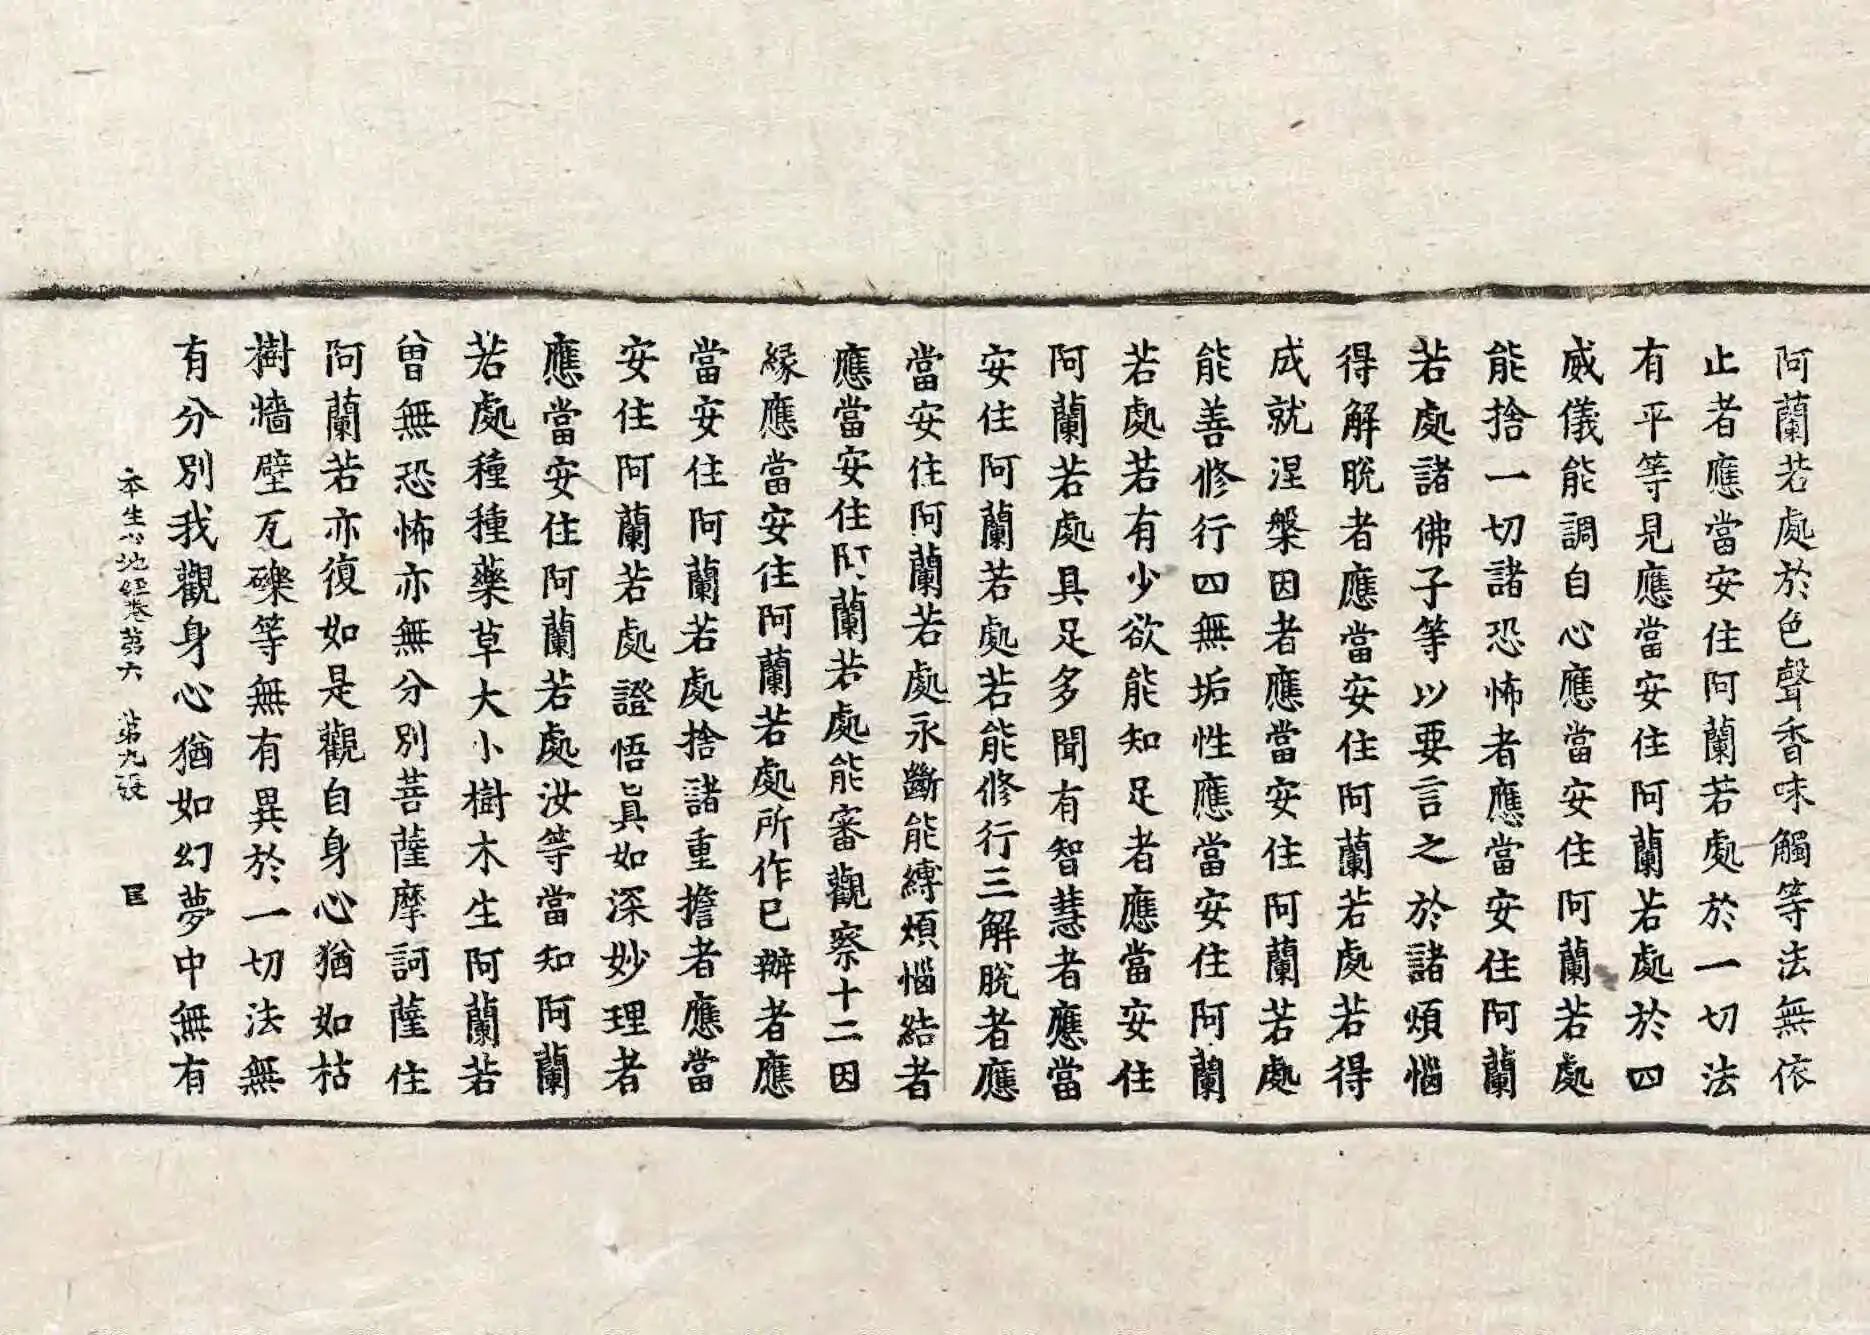 阿蘭若處於色聲香味觸等法無依
止者應當安住阿蘭若處於一切法
有平等見應當安住阿蘭若處於四
威儀能調自心應當安住阿蘭若處
能捨一切諸恐怖者應當安住阿蘭
若處諸佛子等以要言之於諸煩惱
得解脫者應當安住阿蘭若處若得
成就涅槃因者應當安住阿蘭若處
能善修行四無垢性應當安住阿蘭
若處若有少欲能知足者應當安住
阿蘭若處具足多聞有智慧者應當
安住阿蘭若處若能修行三解脫者應
當安住阿蘭若處永斷能縛煩惱結者
應當安住阿蘭若處能審觀察十二因
緣應當安住阿蘭若處所作已辦者應
當安住阿蘭若處捨諸重擔者應當
安住阿蘭若處證悟眞如深妙理者
應當安住阿蘭若處汝等當知阿蘭
若處種種藥草大小樹木生阿蘭若
曾無恐怖亦無分別菩薩摩訶薩住
阿蘭若亦復如是觀自身心猶如枯
樹墻壁瓦礫等無有異於一切法無
有分別我觀身心猶如幻夢中無有
本生心地經卷第六 第九張 匡